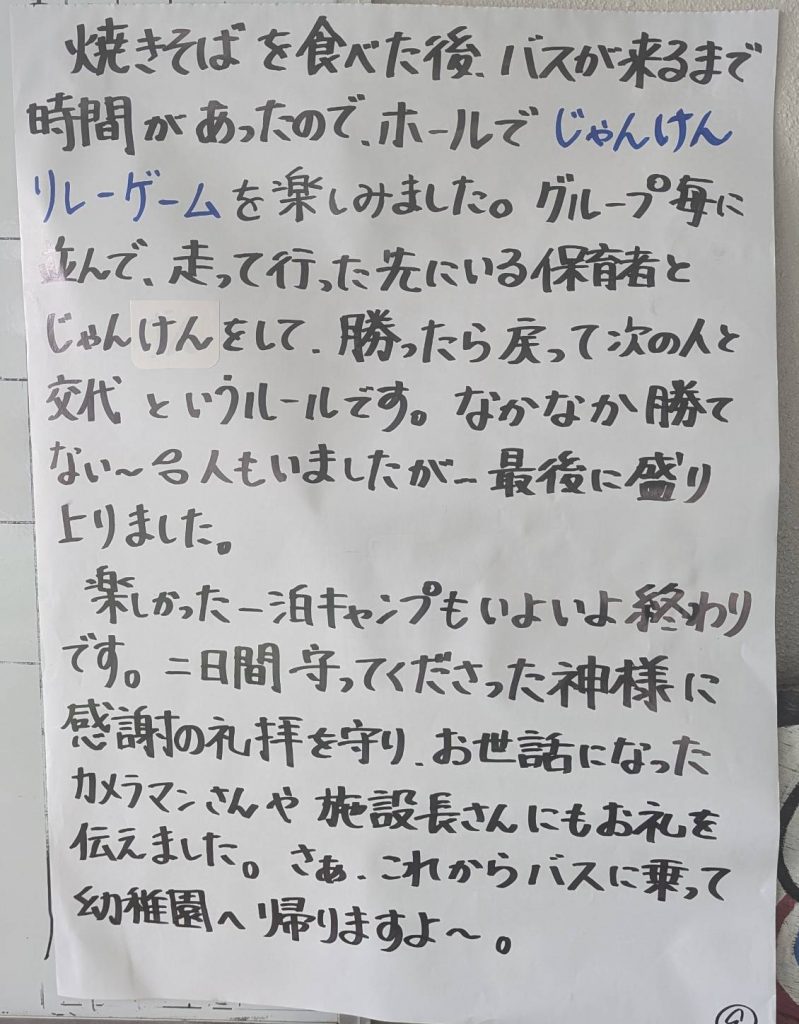 焼きそばを食べた後、バスが来るまで
時間があったので、ホールでじゃんけん
リレーゲームを楽しみました。グループ毎に
並んで、走って行った先にいる保育者と
じゃんけんをして、勝ったら戻って次の人と
交代というルールです。なかなか勝て
ない〜人もいましたが、最後に盛り
上りました。
楽しかった一泊キャンプもいよいよ終わり
です。二日間守ってくださった神様に
感謝の礼拝を守り、お世話になった
カメラマンさんや施設長さんにもお礼を
伝えました。さぁ、これからバスに乗って
幼稚園へ帰りますよ〜。